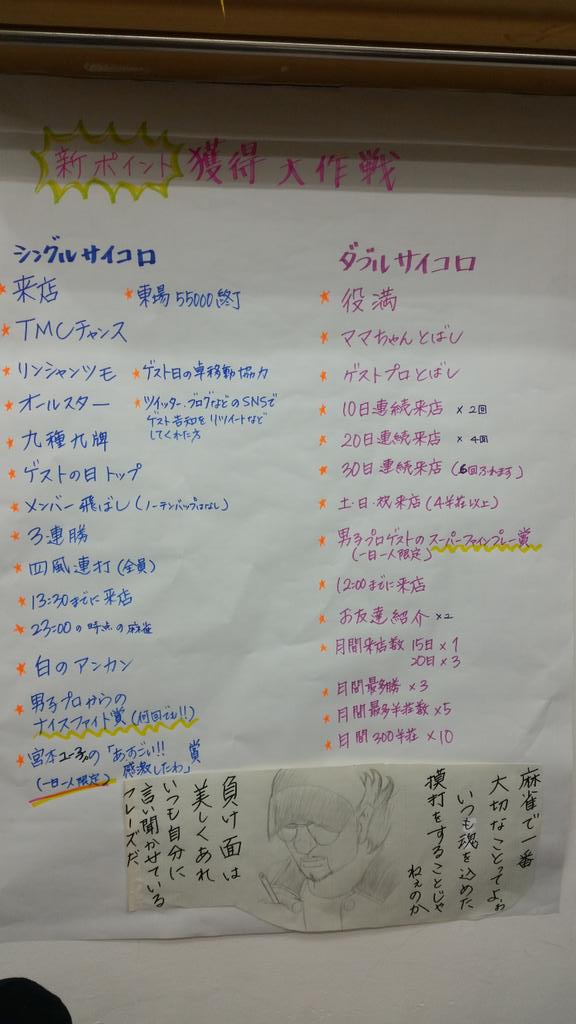 新ポイント獲得大作戦
シングルサイコロ
来店
東場55000終了
TMCチャンス
リンシャンツモ
ゲスト日の卓移動協力
オールスター
ツイッター.ブログなどのSNSで
ゲスト告知をリツイートなど
してくれた方
九種九牌
ゲストの日トップ
メンバー飛ばし(ノーテンバップはなし)
3連勝
四風連打(全員)
13:30までに来店
23:00の時点の麻雀
白のアンカン
男子プロからの
ナイスファイト賞(何回でも!!)
宮本ユー子の「あすごい!! 賞
感激したわ」
(一日一人限定)
ダブルサイコロ
役満
ママちゃんとばし
ゲストプロとばし
10日連続来店 ×2回
20日連続来店 ×4回
30日連続来店(6回ふれます)
土・日・祝来店(4半荘以上)
男子プロゲストのスーパーファインプレー賞
(一日一人限定)
12:00までに来店
お友達紹介 ×2
月間来店数 15日×1
20日×3
月間最多勝 ×3
月間最多半荘数×5
月間300半荘 ×10
麻雀で一番
大切なことってよぉ
いつも魂を込めた
模打をすることじゃ
ねぇのか
負け面は
美しくあれ
いつも自分に
言い聞かせている
フレーズだ